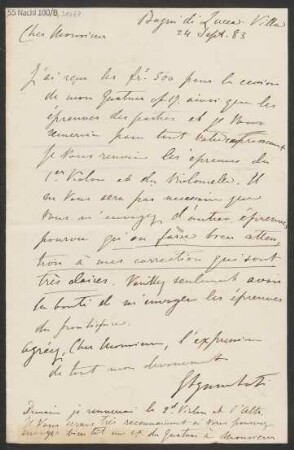 55 Nachl 100/B,
Bagni di Lucca Villa
24 Sept. 83
Cher Monsieur
J'ai reçu les fr. 500 pour la cession
de mon Quatuor op. 17. ainsi que les
épreuves des parties et je Vous
remercie pour tout cela
je Vous renvoie les épreuves du
1er Violon et du Violoncelle. Il
ne Vous sera pas nécessaire que
Vous m'envoyez d'autres épreuves,
pourvu qu'on fasse bien atten-
tion à mes correction qui sont
très claires. Veuillez seulement avoir
la bonté de m'envoyer les épreuves
du frontispice.
Agréez, Cher Monsieur, l'expression
de tout mon dévouement
GSgambati
Demain je renverrai le 2d Violon et l'Alto.
Je Vous serais très reconnaissant si Vous pouvez
envoyer bientôt un ex. du Quatuor à